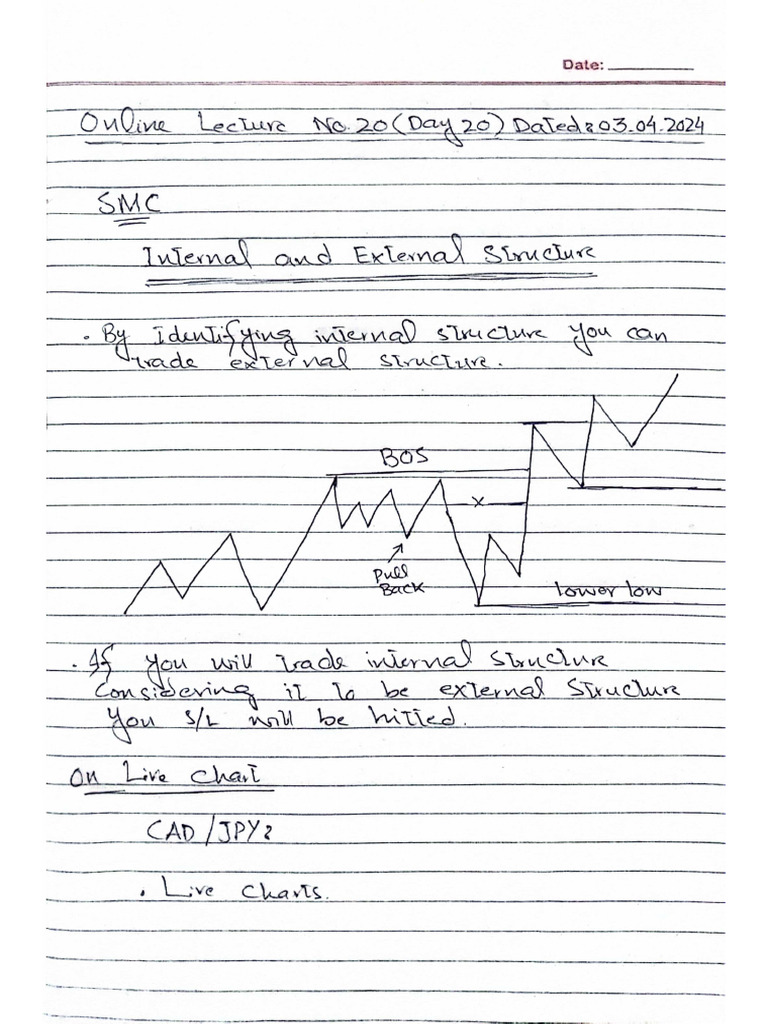 Date:
Online Lecture No.20 (Day 20) Dated: 03.04.2024
SMC
Internal and External Structure
. By identifying internal structure you can
trade external structure.
BOS
x
Pull
Back
lower low
. If you will trade internal structure
Considering it to be external structure
you S/L will be hitted.
On Live Chart
CAD/JPY:
. Live Charts.